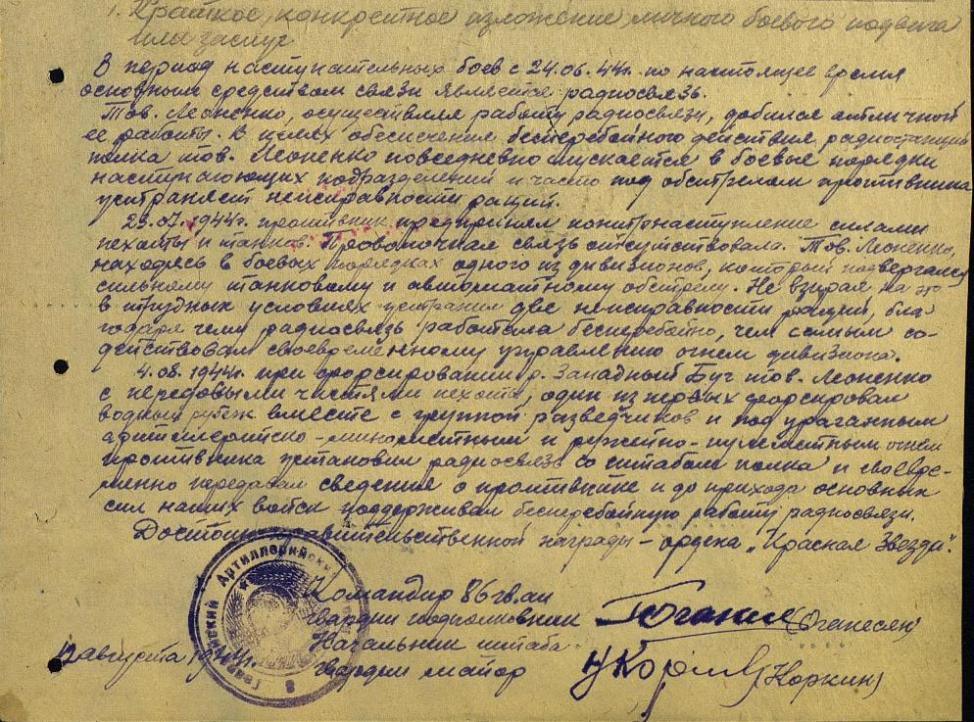 1. Краткое, конкретное изложение личного боевого подвига
или заслуг
В период наступательных боев с 24.06.44г. по настоящее время
основным средством связи является радиосвязь.
Тов. Леоненко, осуществляя работу радиосвязи, добился отличной
ее работы. В целях обеспечения бесперебойного действия радиостанций
полка тов. Леоненко повседневно опускается в боевые порядки
наступающих подразделений и часто под обстрелом противника
устраняет неисправности раций.
1944г. противник предпринял контрнаступление силами
пехоты и танков. Проволочная связь отсутствовала. Тов. Леоненко,
находясь в боевых порядках одного из дивизионов, который подвергался
сильному танковому и автоматному обстрелу. Не взирая на это
в трудных условиях устранил две неисправности раций, бла
годаря чему радиосвязь работала бесперебойно, чем самым со-
действовал своевременному управлению огнем дивизиона.
4.08.1944г. при форсировании р. Западный Буг тов. Леоненко
с передовыми частями пехоты, один из первых форсировал
водный рубеж вместе с группой разведчиков и под ураганным
артиллерийско-минометным и ружейно-пулеметным огнем
противника установил радиосвязь со штабом полка и своевре-
менно передавал сведения о противнике и до прихода основных
сил наших войск поддерживал бесперебойную работу радиосвязи.
Достоин правительственной награды - ордена "Красная Звезда".
Командир 86 гв. ап
гвардии подполковник (Оганесян)
Начальник штаба
12 августа 1944г. гвардии майор (Коркин)
Артиллерийский